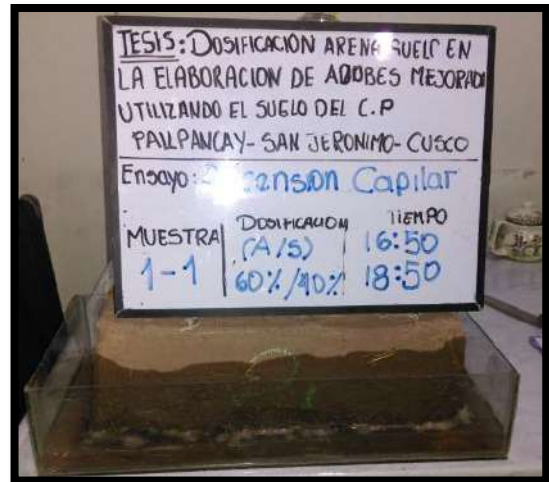 TESIS: DOSIFICACION ARENA SUELO EN
LA ELABORACION DE ADOBES MEJORADO
UTILIZANDO EL SUELO DEL C.P
PALLPANCAY- SAN JERONIMO- CUSCO
Ensayo: Capilar
MUESTRA DOSIFICACION TIEMPO
(A/S) 16:50
1-1 60%/40% 18:50